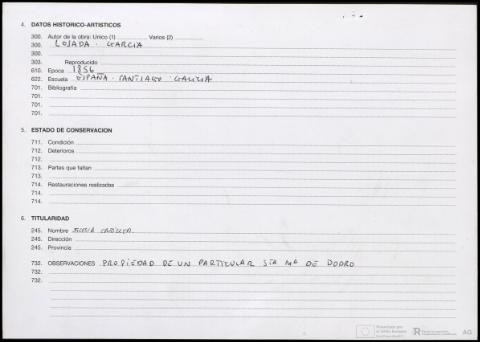 4. DATOS HISTORICO-ARTISTICOS
300. Autor de la obra: Unico (1) Varios (2)
300. LOSADA · GARCIA
300.
303. Reproducido
610. Epoca 1856
622. Escuela ESPAÑA · SANTIAGO · GALICIA
701. Bibliografía
701.
701.
5. ESTADO DE CONSERVACION
711. Condición
712. Deterioros
712.
713. Partes que faltan
713.
714. Restauraciones realizadas
714.
714.
6. TITULARIDAD
245. Nombre
245. Dirección
245. Provincia
732. OBSERVACIONES PROPIEDAD DE UN PARTICULAR STA Mª DE DODRO
732.
732.
Financiado por
la Unión Europea
AG